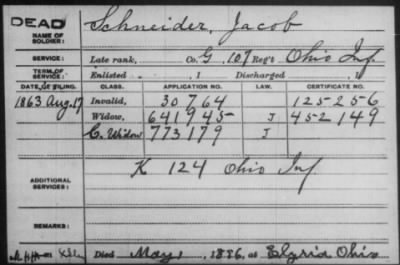 DEAD
NAME OF SOLDIER: Schneider, Jacob
SERVICE: Late rank, Co. G, 107 Reg't Ohio Inf.
TERM OF SERVICE: Enlisted , 1 Discharged , 1
DATE OF FILING. CLASS. APPLICATION NO. LAW. CERTIFICATE NO.
1863 Aug. 17 Invalid, 30764 125256
Widow, 641945 J 452149
C. Widow 773179 J
K 124 Ohio Inf
ADDITIONAL SERVICES:
REMARKS:
Died May 1, 1886, at Elyria Ohio